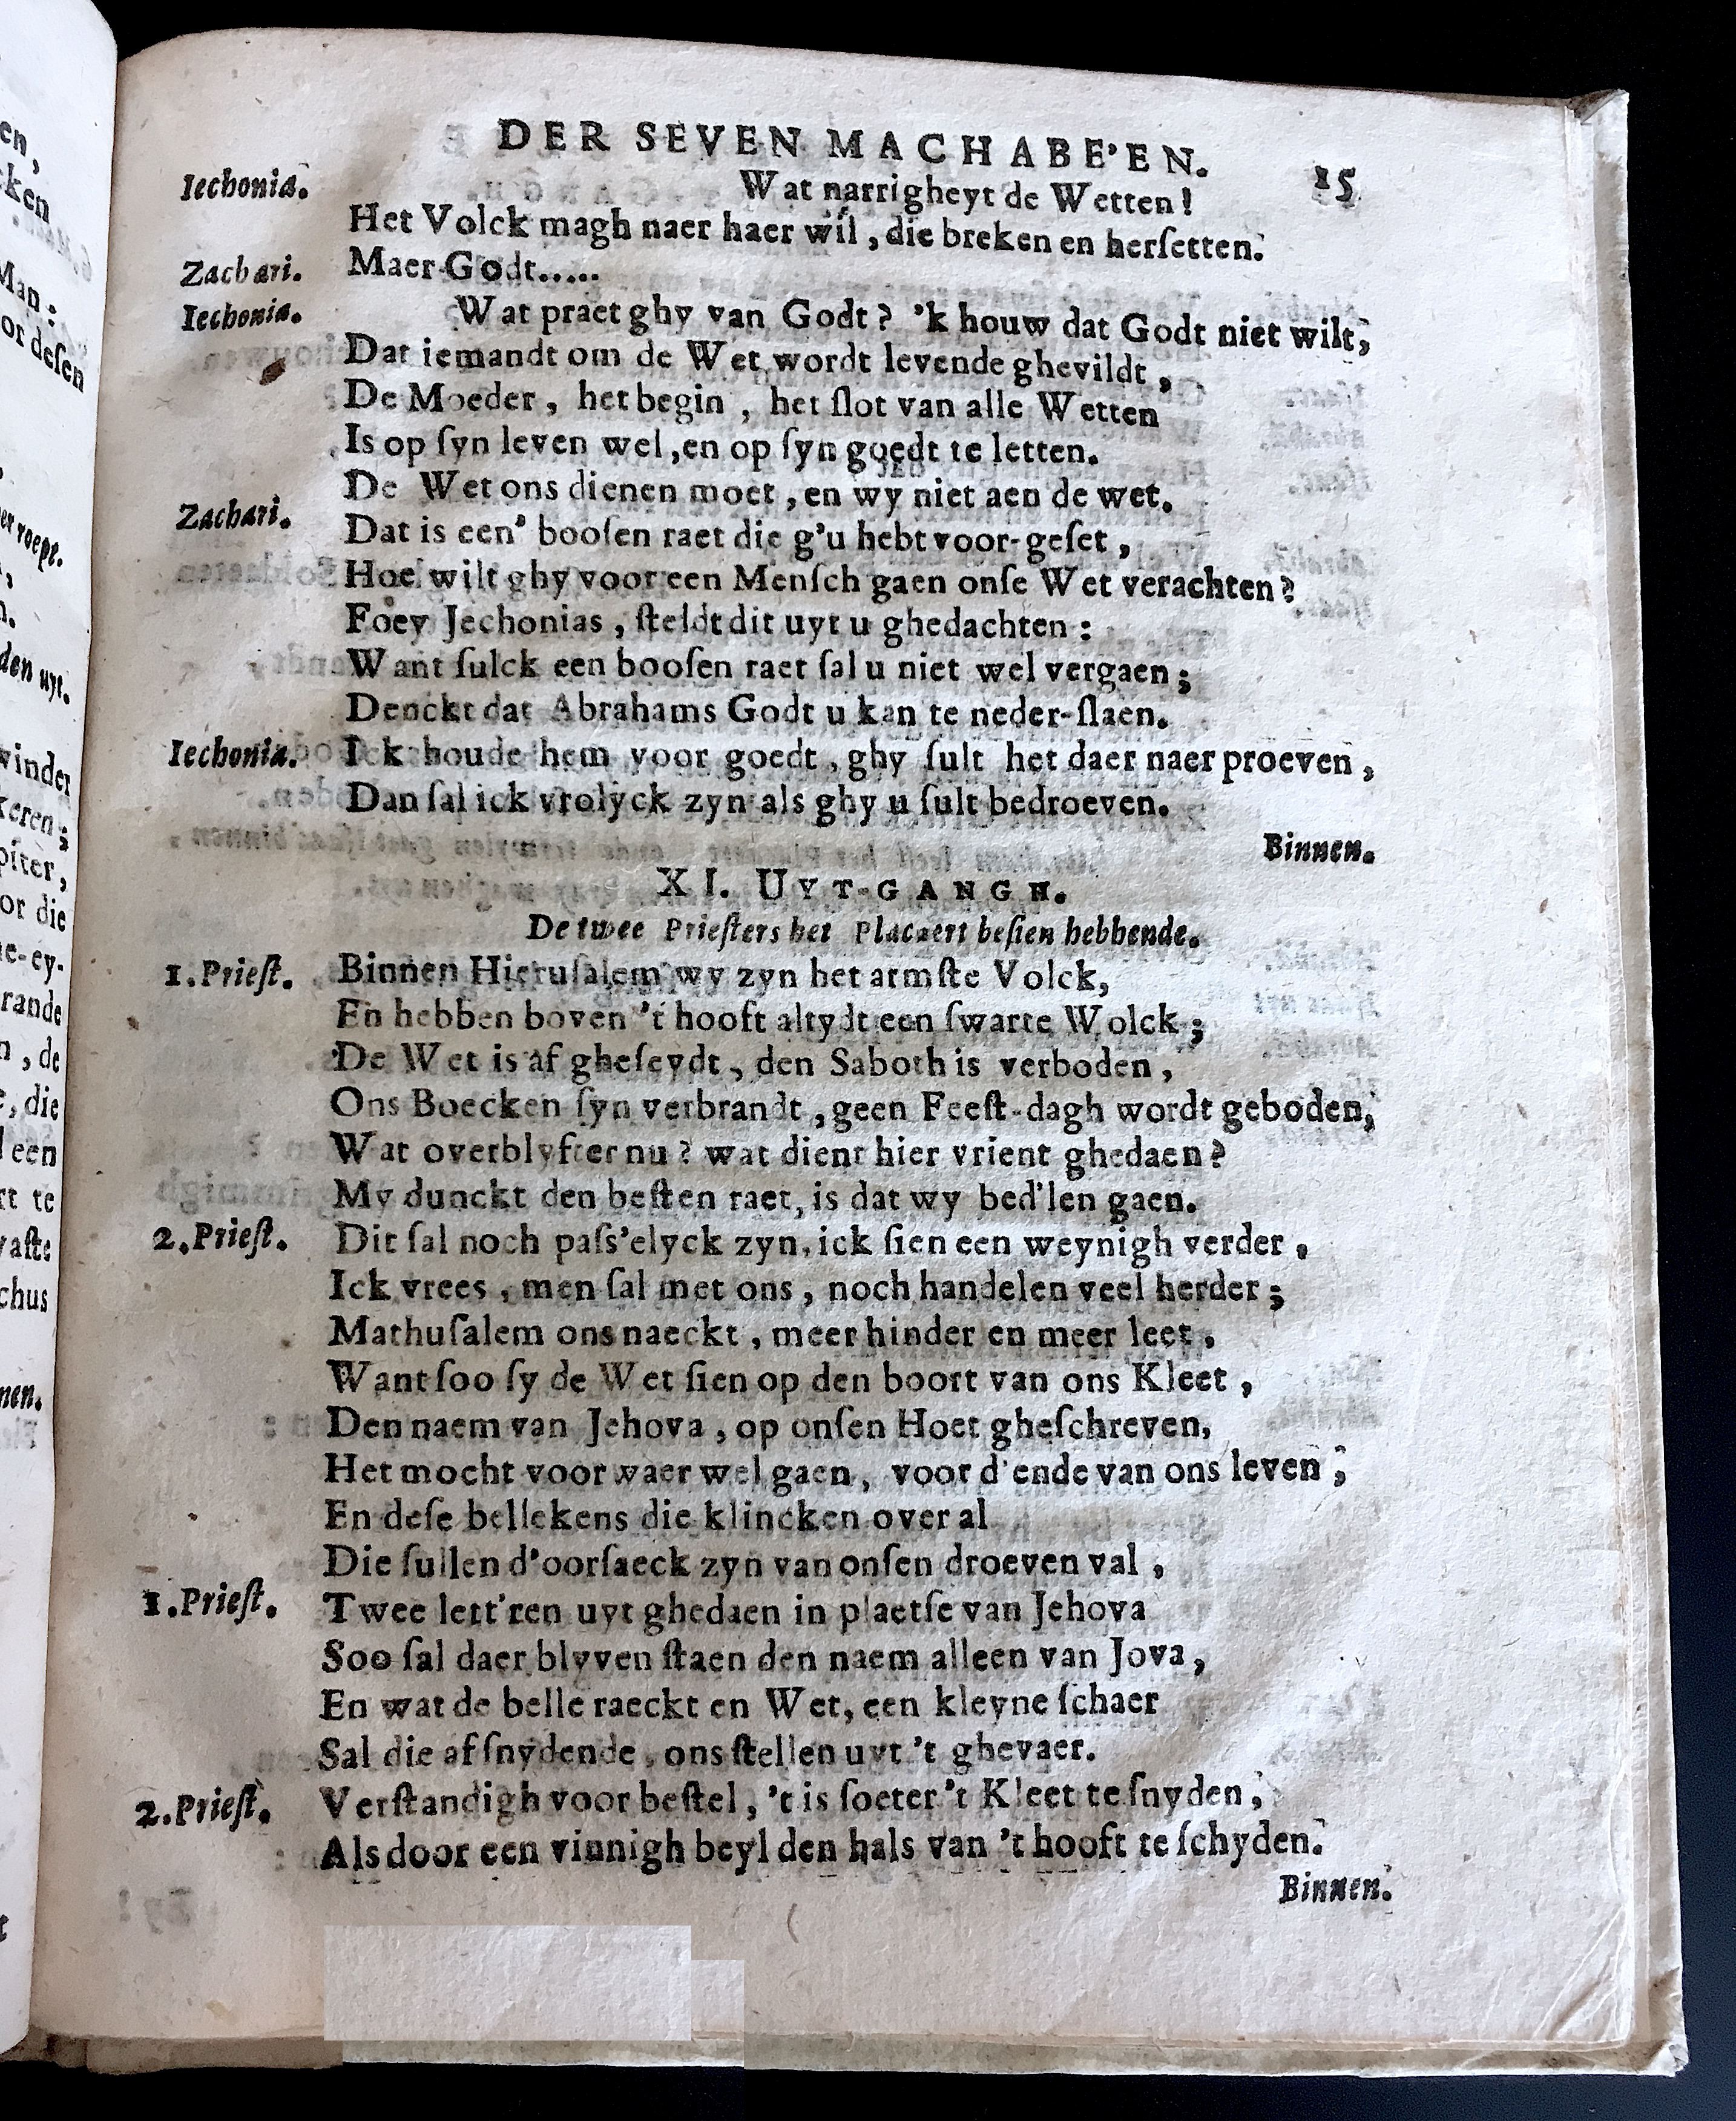 DER SEVEN MACHABE'EN. 15
Iechonia. Wat narrigheyt de Wetten!
Het Volck magh naer haer wil, die breken en herſetten.
Zachari. Maer Godt.....
Iechonia. Wat praet ghy van Godt? 'k houw dat Godt niet wilt,
Dat iemandt om de Wet wordt levende ghevildt,
De Moeder, het begin, het ſlot van alle Wetten
Is op ſyn leven wel, en op ſyn goedt te letten.
De Wet ons dienen moet, en wy niet aen de wet.
Zachari. Dat is een' booſen raet die g'u hebt voor-geſet,
Hoe wilt ghy voor een Menſch gaen onſe Wet verachten?
Foey Jechonias, ſteldt dit uyt u ghedachten:
Want ſulck een booſen raet ſal u niet wel vergaen;
Denckt dat Abrahams Godt u kan te neder-ſlaen.
Iechonia. Ik houde hem voor goedt, ghy ſult het daer naer proeven,
Dan ſal ick vrolyck zyn als ghy u ſult bedroeven.
Binnen.
XI. UYT-GANGH.
De twee Prieſters het Placaert beſien hebbende.
1.Prieſt. Binnen Hieruſalem wy zyn het armſte Volck,
En hebben boven 't hooft altydt een ſwarte Wolck;
De Wet is af gheſeydt, den Saboth is verboden,
Ons Boecken ſyn verbrandt, geen Feeſt-dagh wordt geboden,
Wat overblyfter nu? wat dient hier vrient ghedaen?
My dunckt den beſten raet, is dat wy bed'len gaen.
2.Prieſt. Dit ſal noch paſs'elyck zyn, ick ſien een weynigh verder,
Ick vrees, men ſal met ons, noch handelen veel herder;
Mathuſalem ons naeckt, meer hinder en meer leet,
Want ſoo ſy de Wet ſien op den boort van ons Kleet,
Den naem van Jehova, op onſen Hoet gheſchreven,
Het mocht voorwaer wel gaen, voor d'ende van ons leven;
En deſe bellekens die klincken over al
Die ſullen d'oorſaeck zyn van onſen droeven val,
1.Prieſt. Twee lett'ren uyt ghedaen in plaetſe van Jehova
Soo ſal daer blyven ſtaen den naem alleen van Jova,
En wat de belle raeckt en Wet, een kleyne ſchaer
Sal die af ſnydende, ons ſtellen uyt 't ghevaer.
2.Prieſt. Verſtandigh voor beſtel, 't is ſoeter 't Kleet te ſnyden,
Als door een vinnigh beyl den hals van 't hooft te ſchyden.
Binnen.